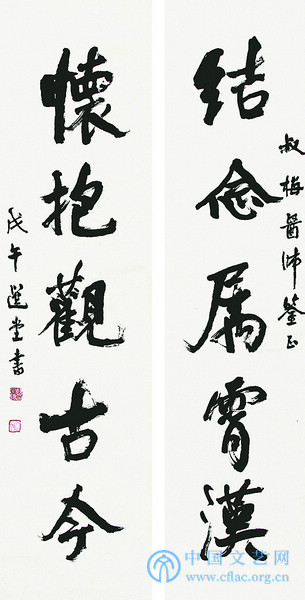 叔梅醫師鑒正
結念属霄漢
懷抱觀古今
戊午選堂書
中国文艺网
www.cflac.org.cn